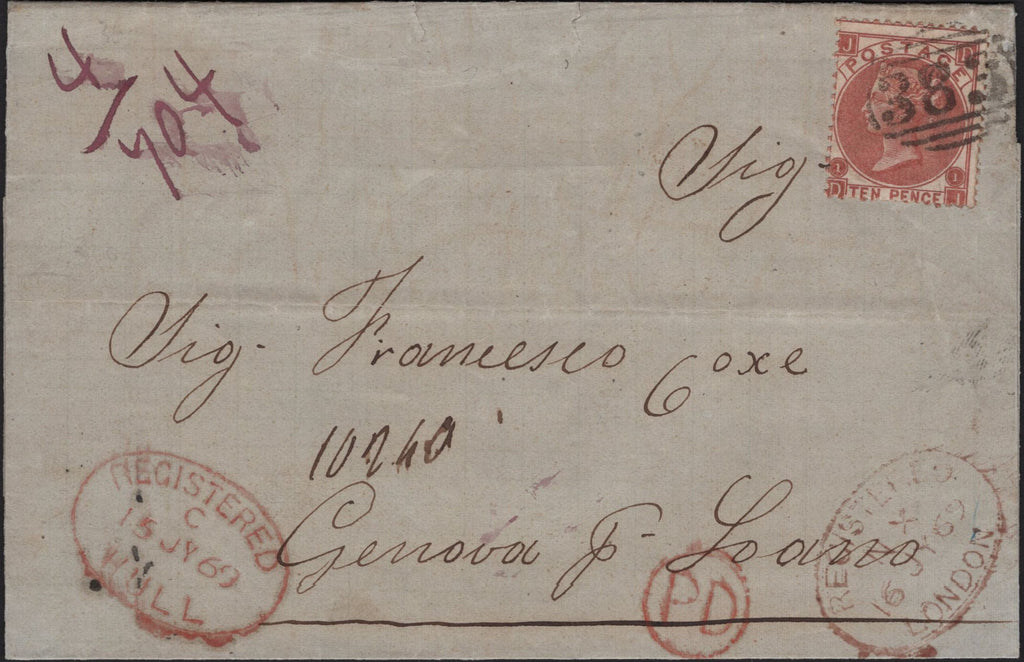 4/
704
J D
POSTAGE
38
1 1
D TEN PENCE J
Sig.
Sig. Francesco Coxe
10240
Genova p. Loano
REGISTERED
C
15 JY 69
HULL
PD
REGISTERED
X
16 JY 69
LONDON